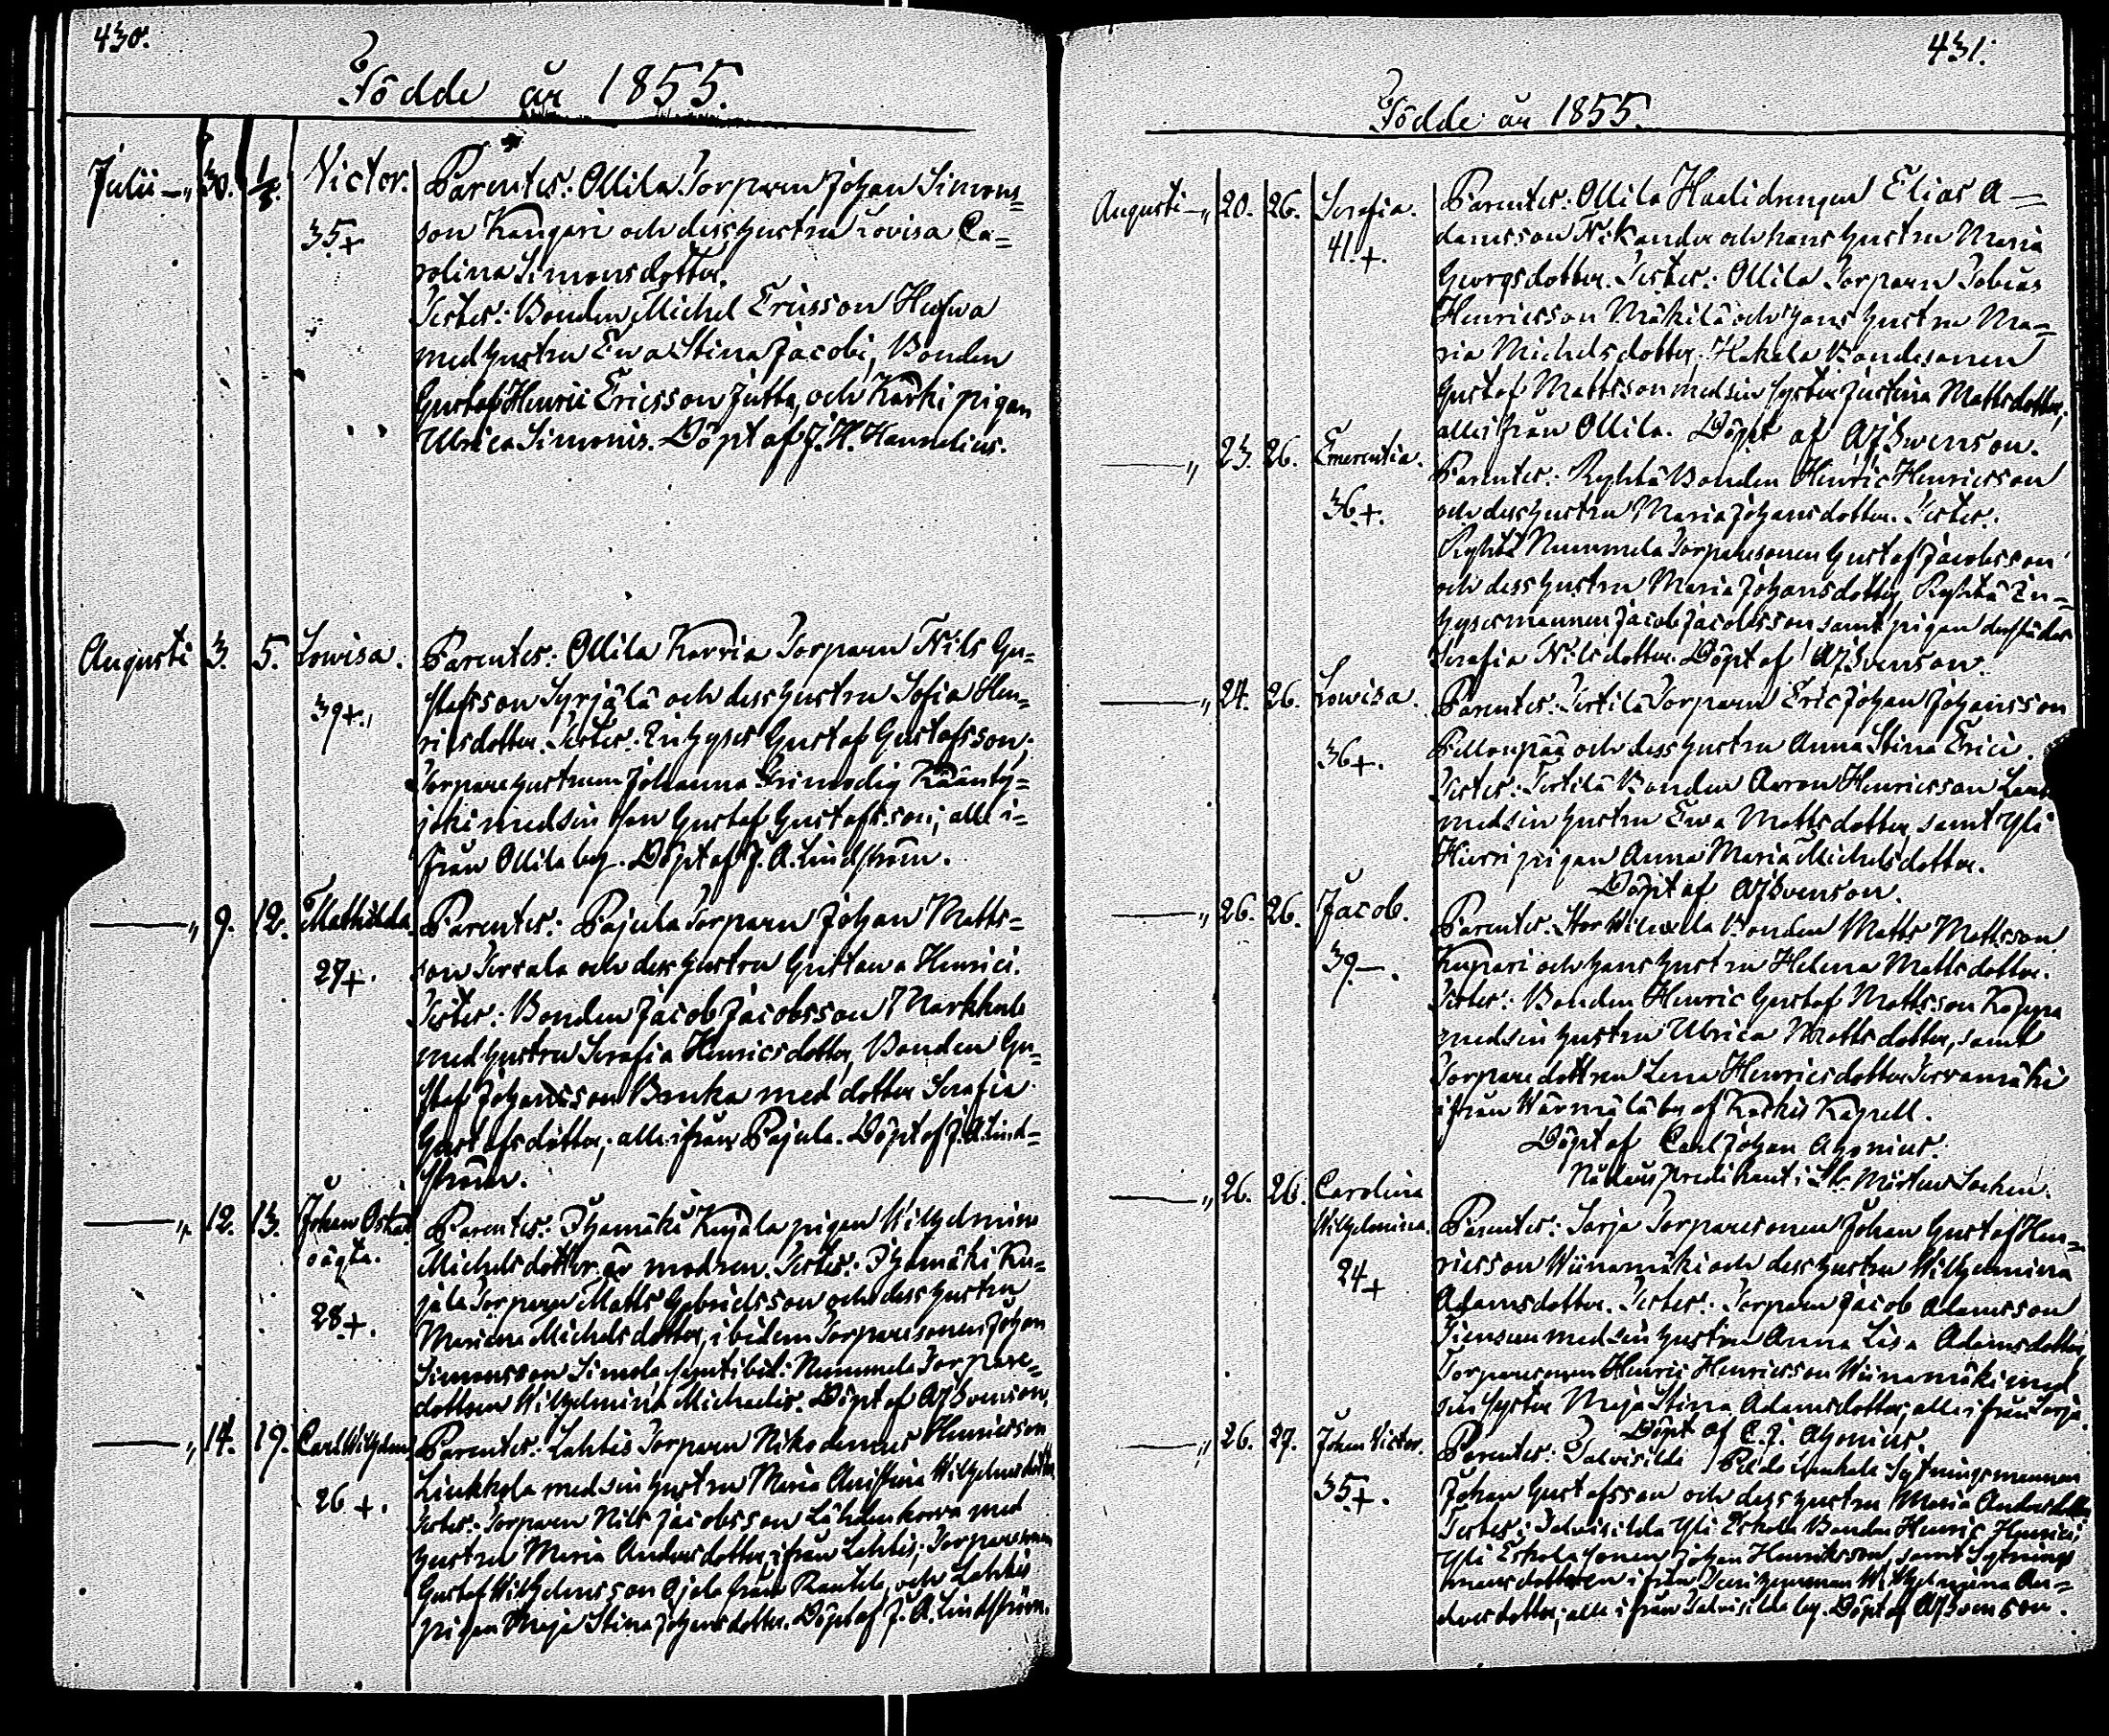 430.
Födde år 1855.
Julii — „ 30. 1/8. Victor. Parentes: Ollila Torparen Johan Simons=
35+ son Kangari och dess hustru Lovisa Ca=
rolina Simonsdotter.
Testes: Bonden Michel Ericsson
med hustru Ewa Stina Jacobi, Bonden
Gustaf Henric Ericsson Jutta, och Kärki pigan
Ulrica Simonis. Döpt af J. H. Hannelius.
Augusti 3. 5. Lowisa. Parentes: Ollila Karria Torparen Nils Gu=
39+. stafsson Syrjälä och dess hustru Sofia Hen=
ricsdotter. Testes: Inhyses Gustaf Gustafsson;
Torpare hustrun Johanna Frimodig Käänty=
joki med sin son Gustaf Gustafsson; alle i=
från Ollila by. Döpt af J. A. Lindström.
— „ 9. 12. Mathilda. Parentes: Pajula Torparen Johan Matts=
27+. son och dess hustru Gustava Henrici.
Testes: Bonden Jacob Jacobsson Markkula
med hustru Serafia Henricsdotter, Bonden Gu=
staf Johansson med dotter Serafia
Gustafsdotter; alle ifrån Pajula. Döpt af J. A. Lind=
ström.
— „ 12. 13. Johan Oskar Parentes: Ihamäki Kujala pigan Wilhelmina
oägta. Michelsdotter är modren. Testes: Ihamäki Ku=
28+. jala Torparen Matts Gabrielsson och dess hustru
Mariana Michelsdotter, ibidem Torparesonen Johan
Simonsson Simola samt ibid: Nummela Torpare=
dottren Wilhelmina Michaelis. Döpt af AJSvenson.
— „ 14. 19. Carl Wilhelm Parentes: Lahtis Torparen Nikodemus Henricsson
26+. Liukkola med sin hustru Maria Christina Wilhelmsdotter
Testes: Torparen Nils Jacobsson Lähdenkorva med
hustru Maria Andersdotter, ifrån Lahtis; Torparesonen
Gustaf Wilhelmsson Ojala från Rautila, och Lahtis
pigan Maja Stina Johansdotter. Döpt af J. A. Lindström.
431.
Födde år 1855.
Augusti — „ 20. 26. Serafia. Parentes: Ollila Haalidrengen Elias A=
41.+. damsson Nikander och hans hustru Maria
Georgsdotter. Testes: Ollila Torparen Tobias
Henricsson Mäkilä och hans hustru Ma=
ria Michelsdotter; Hakala Bondesonen
Gustaf Mattsson med sin syster Justina Mattsdotter;
alle ifrån Ollila. Döpt af AJSvenson.
— „ 23. 26. Emerentia. Parentes: Ryhtä Bonden Henric Henricsson
36+. och dess hustru Maria Johansdotter. Testes:
Ryhtä Nummela Torparesonen Gustaf Jacobsson
och dess hustru Maria Johansdotter, Ryhtä In=
hysesmannen Jacob Jacobsson samt pigan dersädes
Serafia Nilsdotter. Döpt af AJSvenson.
— „ 24. 26. Lowisa. Parentes: Tertilä Torparen Eric Johan Johansson
36+. Pellonpää och dess hustru Anna Stina Erici.
Testes: Tertilä Bonden Aaron Henricsson
med sin hustru Ewa Mattsdotter, samt Yli
Hirri pigan Anna Maria Michelsdotter.
Döpt af AJSvenson.
— „ 26. 26. Jacob. Parentes: Stor Bonden Matts Mattsson
39—. Kupari och hans hustru Helena Mattsdotter.
Testes: Bonden Henric Gustaf Mattsson
med sin hustru Ulrica Mattsdotter, samt
Torparedottren Lena Henricsdotter Tervamäki
ifrån Wärmälä by af Koskis Kapell.
Döpt af Carl Johan Ahonius.
Nådårspredikant i St: Mårtens Socken.
— „ 26. 26. Carolina
Wilhelmina. Parentes: Sorja Torparesonen Johan Gustaf Hen=
24+ ricsson Wiinamäki och dess hustru Wilhelmina
Adamsdotter. Testes: Torparen Jacob Adamsson
med sin hustru Anna Lisa Adamsdotter,
Torparesonen Henric Henricsson Wiinamäki med
sin syster Maja Stina Adamsdotter; alle ifrån Sorja.
Döpt af C. J. Ahonius.
— „ 26. 27. Johan Victor. Parentes: Talvisilda Sytningsmannen
35+. Johan Gustafsson och dess hustru Maria Andersdotter
Testes: Talvisilda Yli Eskola Bonden Henric Henrici,
Yli Eskola sonen Johan Henriksson, samt Sytnings
mansdottren ifrån Wilhelmina An=
dersdotter; alle ifrån Talvisilda by. Döpt af AJSvenson.